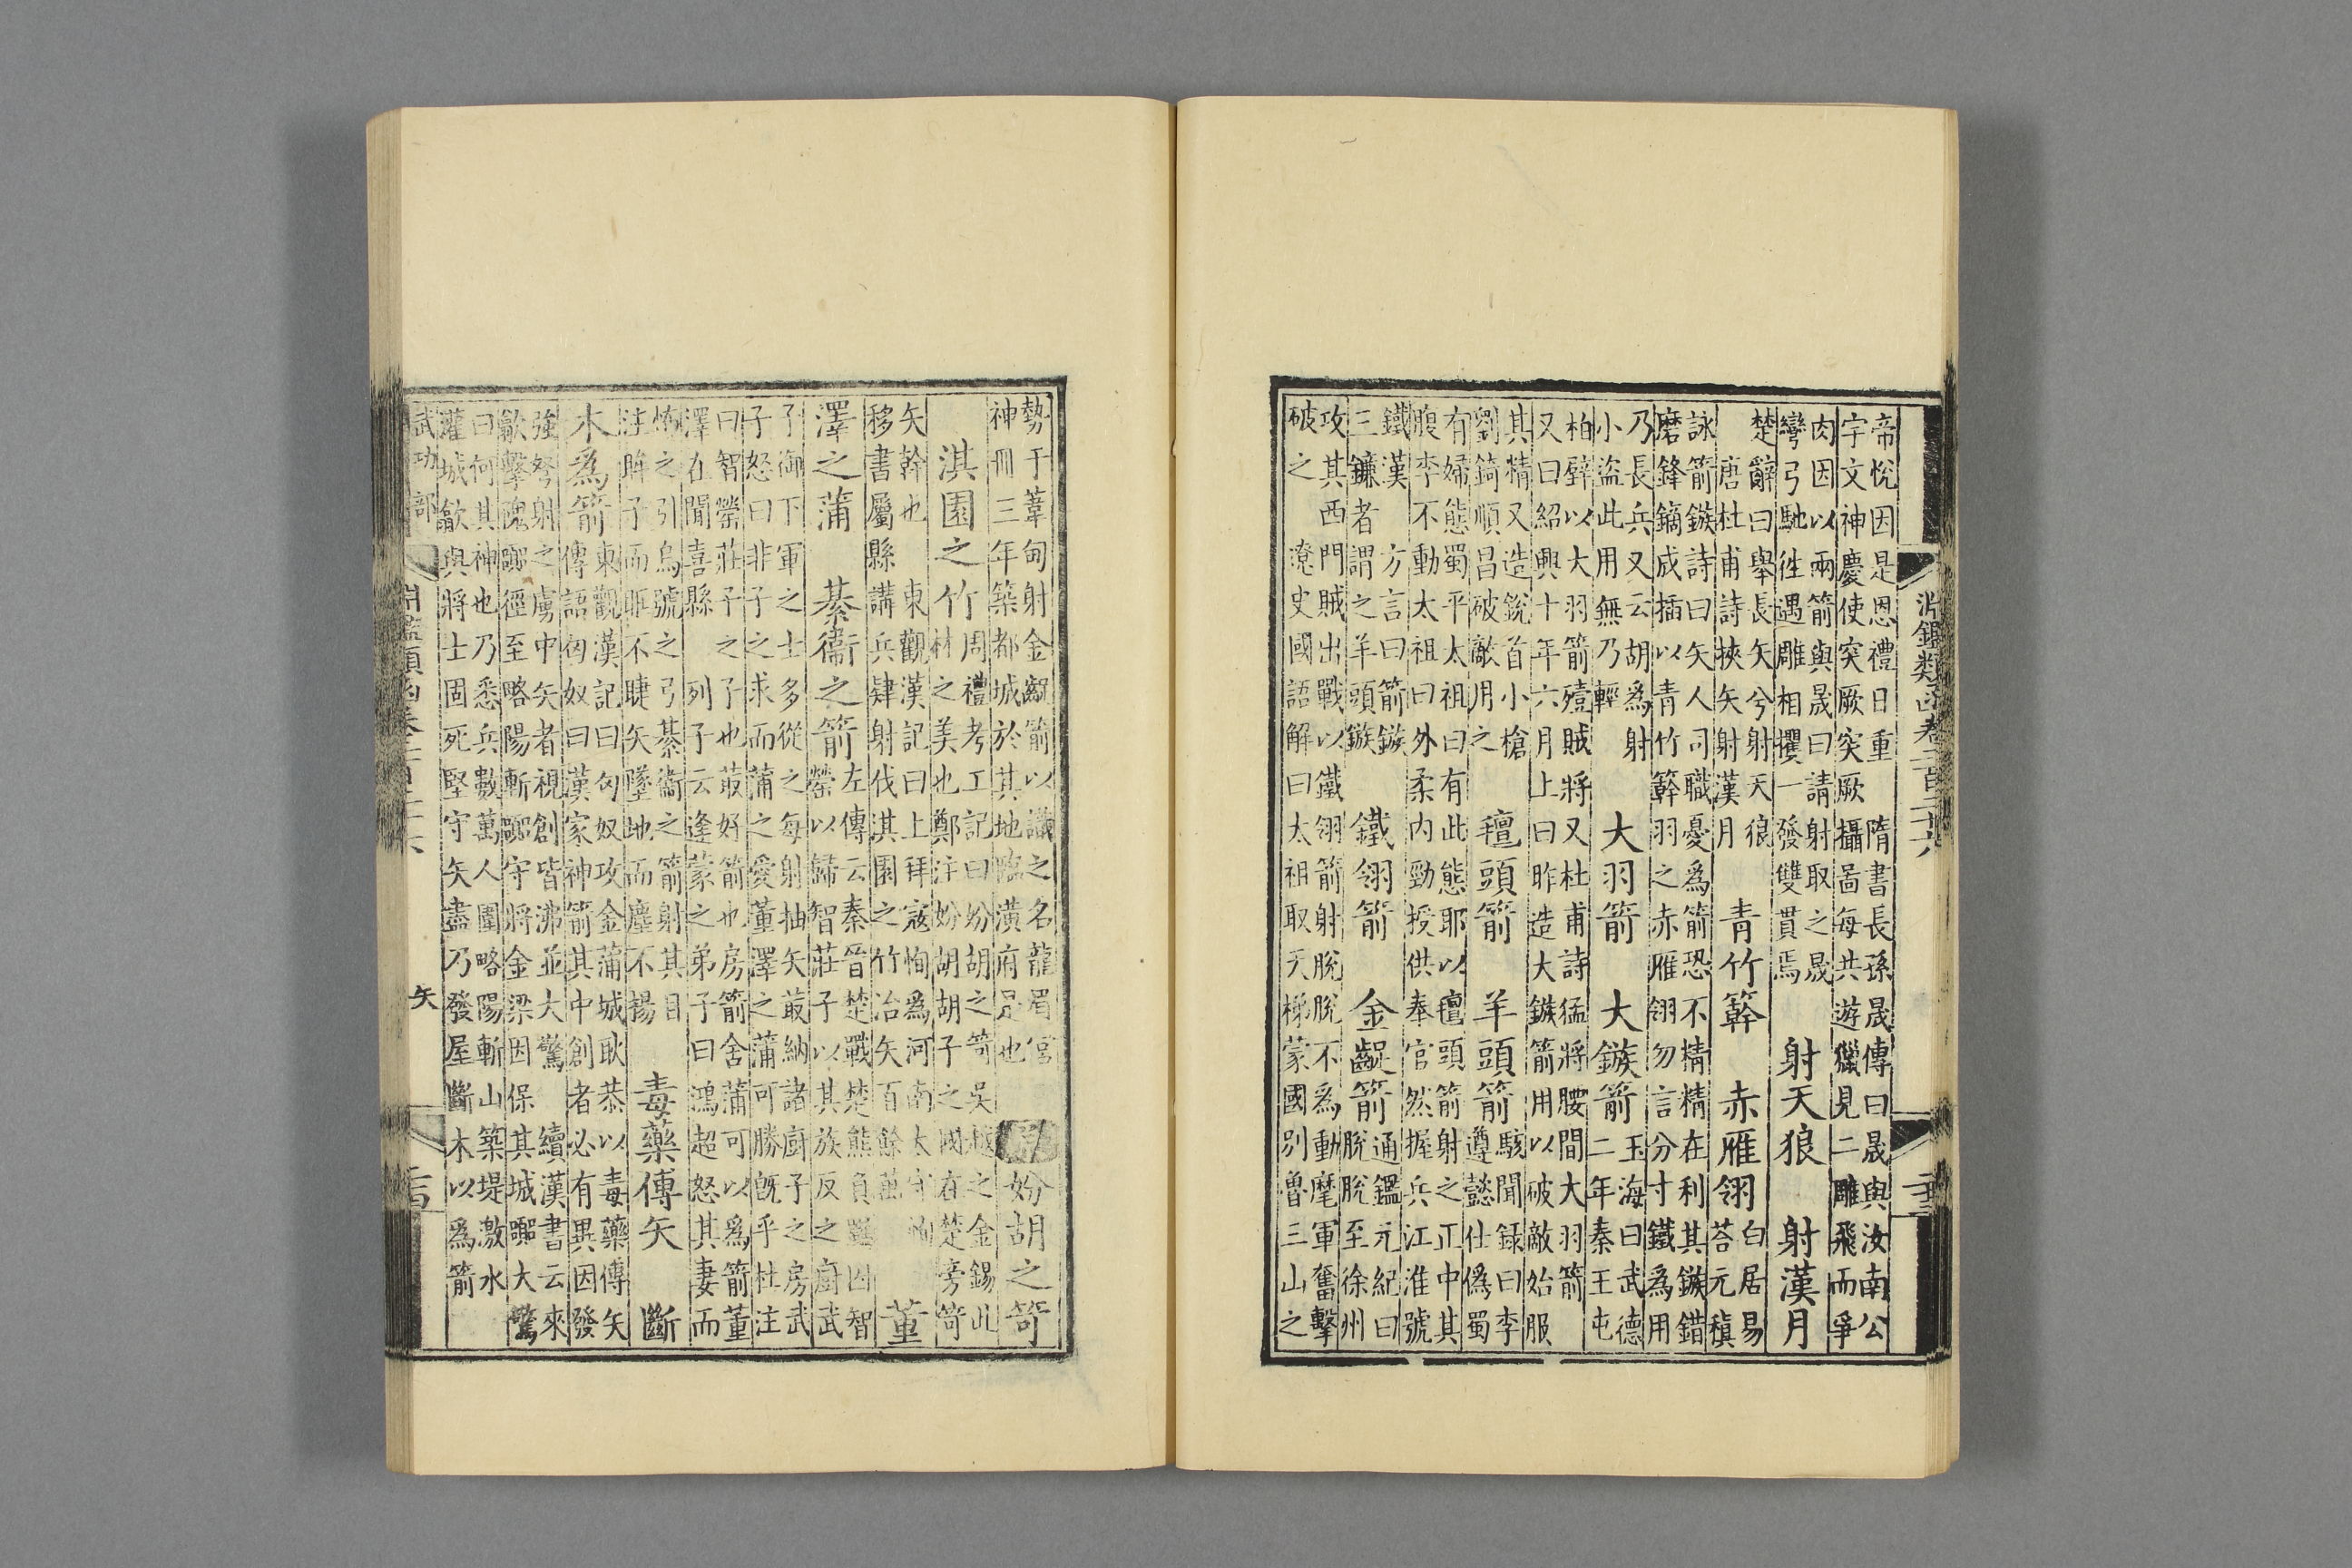 淵鑑類函卷二百二十六
帝悅因是恩禮日重 隋書長孫晟傳曰晟與汝南公
宇文神慶使突厥突厥攝啚每共遊獵見二雕飛而爭
肉因以兩箭與晟曰請射取之晟
彎弓馳往遇雕相攫一發雙貫焉
射天狼 射漢月
楚辭曰舉長矢兮射天狼
唐杜甫詩挾矢射漢月
青竹簳 赤雁翎
白居易
荅元稹
詠箭鏃詩曰矢人司職憂為箭恐不精精在利其鏃錯
磨鋒鏑成插以青竹簳羽之赤雁翎勿言分寸鐵為用
乃長兵又云胡為射
小盜此用無乃輕
大羽箭 大鏃箭
玉海曰武德
二年秦王屯
柏壁以大羽箭殪賊將又杜甫詩猛將腰間大羽箭
又曰紹興十年六月上曰昨造大鏃箭用以破敵始服
其精又造銳首小槍
劉錡順昌破敵用之
䄠頭箭 羊頭箭
駭聞録曰李
遵懿仕僞蜀
有婦態蜀平太祖曰有此態耶以䄠頭箭射之正中其
腹李不動太祖曰外柔內勁授供奉官然握兵江淮號
鐵漢 方言曰箭鏃
三鐮者謂之羊頭鏃
鐵翎箭 金齪箭
通鑑元紀曰
脫脫至徐州
攻其西門賊出戰以鐵翎箭射脫脫不為動麾軍奮擊
破之 遼史國語解曰太祖取天梯蒙國別魯三山之
勢于葦甸射金齪箭以識之名龍眉宮
神冊三年築都城於其地臨潢府是也
妢胡之笴
淇園之竹
周禮考工記曰妢胡之笴吳越之金錫此
材之美也鄭注妢胡胡子之國在楚旁笴
矢幹也 東觀漢記曰上拜寇恂為河南太守恂
移書屬縣講兵肄射伐淇園之竹冶矢百餘萬
董
澤之蒲 綦衞之箭
左傳云秦晉楚戰楚熊負羈囚智
罃以歸智莊子以其族反之廚武
子御下軍之士多從之每射抽矢菆納諸廚子之房武
子怒曰非子之求而蒲之愛董澤之蒲可勝既乎杜注
曰智罃莊子之子也菆好箭也房箭舍蒲可以為箭董
澤在聞喜縣 列子云逢蒙之弟子曰鴻超怒其妻而
怖之引烏號之弓綦衞之箭射其目
注眸子而眶不睫矢墜地而塵不揚
毒藥傅矢 斷
木為箭
東觀漢記曰匈奴攻金蒲城耿恭以毒藥傅矢
傳語匈奴曰漢家神箭其中創者必有異因發
強弩射之虜中矢者視創皆沸並大驚 續漢書云來
歙擊隗囂徑至略陽斬囂守將金梁因保其城囂大驚
曰何其神也乃悉兵數萬人圍略陽斬山築堤激水
灌城歙與將士固死堅守矢盡乃發屋斷木以為箭
武功部 淵鑑類函卷二百二十六 矢